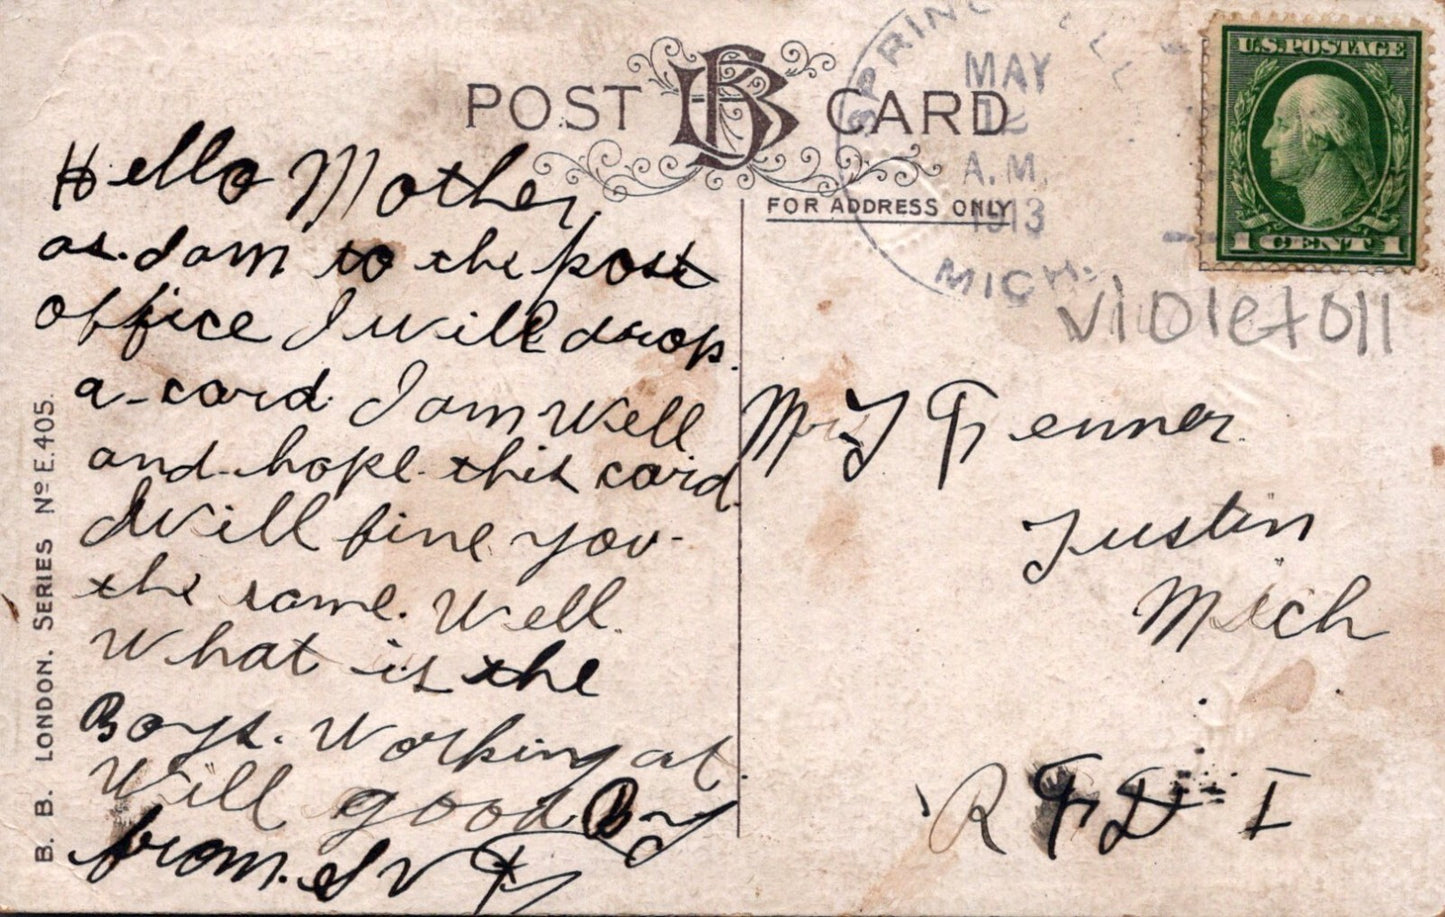 POST BB CARD
FOR ADDRESS ONLY
MAY
12
A.M.
1913
MICH.
U.S. POSTAGE
1 CENT 1
violetoll
Hello Mother
as. I am to the post
office I will drop
a-card. I am well
and-hope this card
I will fine you-
the same. Well
what is the
Boys. Working at
Will good By
from.
Renner
Tustin
Mich
R F D I
B. B. LONDON. SERIES No E. 405.